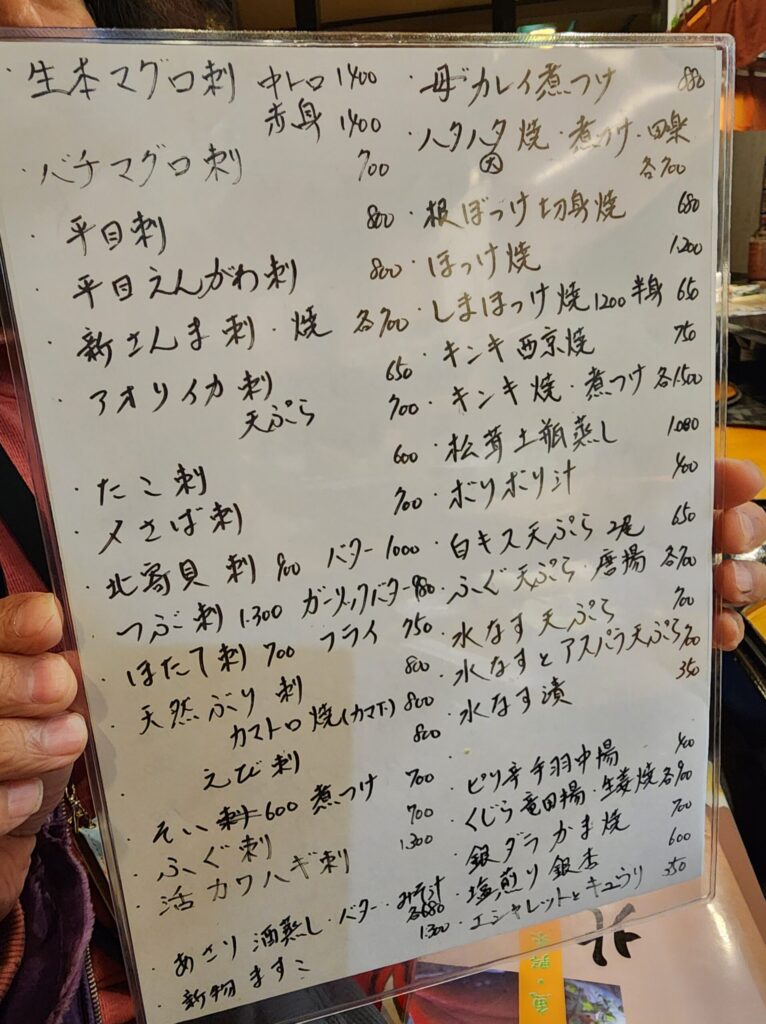 ・生本マグロ刺 中トロ 1400
赤身 1400
・バチマグロ刺 700
・平目刺 800
・平目えんがわ刺 800
・新さんま刺・焼 各700
・アオリイカ刺 650
天ぷら 700
・たこ刺 600
・〆さば刺 700
・北寄貝刺 900 バター 1000
・つぶ刺 1.300 ガーリックバター 980
・ほたて刺 700 フライ 750
・天然ぶり刺 800
カマトロ焼(カマ下) 800
えび刺 800
・そい刺 600 煮つけ 700
・ふぐ刺 700
・活カワハギ刺 1.300
・あさり酒蒸し・バター・みそ汁 各680
・新物ますこ 1.300
・カレイ煮つけ 880
・ハタハタ 焼・煮つけ・田楽
大 各700
・根ぼっけ切身焼 680
・ほっけ焼 1.200
・しまほっけ焼 1200 半身 650
・キンキ西京焼 750
・キンキ焼・煮つけ 各1.500
・松茸土瓶蒸し 1.080
・ボリボリ汁 400
・白キス天ぷら 2尾 650
・ふぐ天ぷら・唐揚 各700
・水なす天ぷら 700
・水なすとアスパラ天ぷら 700
・水なす漬 350
・ピリ辛手羽中揚 400
・くじら竜田揚・生姜焼 各900
・銀ダラかま焼 700
・塩煎り銀杏 600
・エシャレットとキュウリ 350